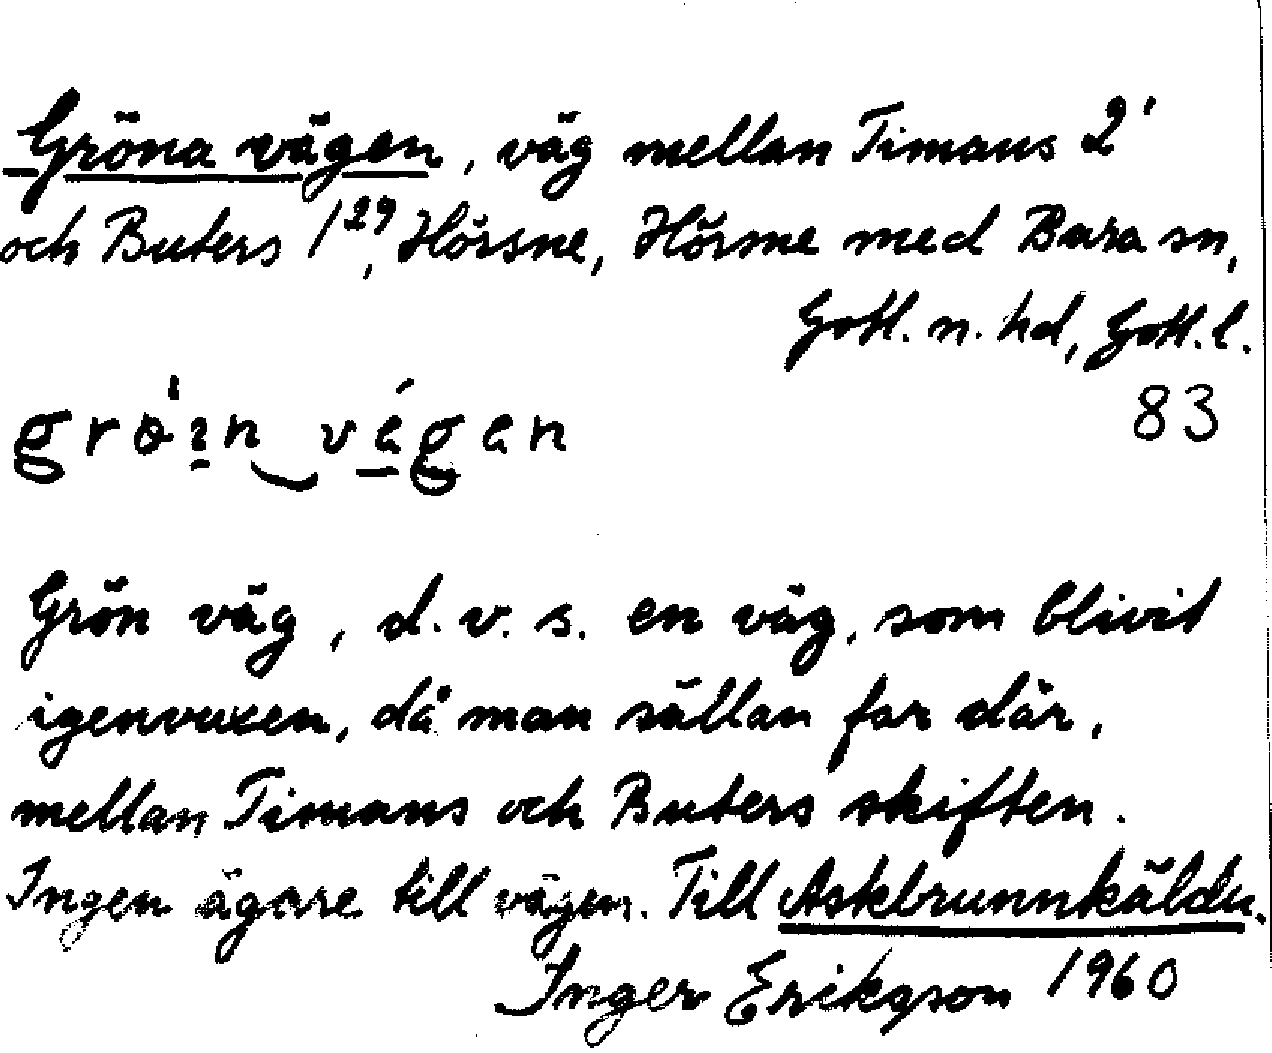 Gröna vägen, väg mellan Timans 2¹
och Buters 1²⁹, Hörsne, Hörsne med Bara sn,
Gotl. n. hd, Gotl. l.
83
vägen
Grön väg, d.v.s. en väg, som blivit
igenvuxen, då man sällan far där,
mellan Timans och Buters skiften.
Ingen ägare till vägen. Till Askbrunnkäldu.
Inger Erikqson 1960